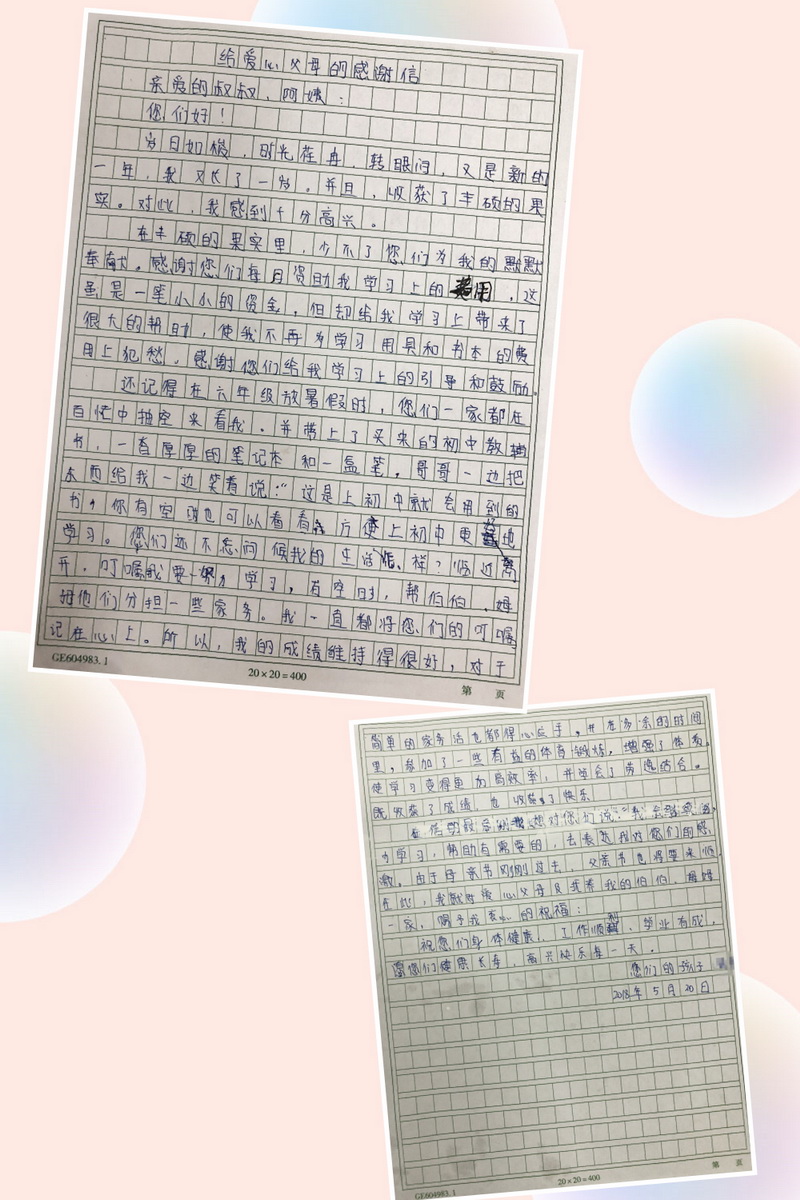 给爱心父母的感谢信
亲爱的叔叔、阿姨：
您们好！
岁月如梭，时光荏冉，转眼间，又是新的
一年，我又长了一岁。并且，收获了丰硕的果
实。对此，我感到十分高兴。
在丰硕的果实里，少不了您们为我的默默
奉献。感谢您们每月资助我学习上的费用，这
虽是一笔小小的资金，但却给我学习上带来了
很大的帮助，使我不再为学习用具和书本的费
用上犯愁。感谢您们给我学习上的引导和鼓励。
还记得在六年级放暑假时，您们一家都在
百忙中抽空来看我。并带上了买来的初中教辅
书，一沓厚厚的笔记本和一盒笔。哥哥一边把
东西给我一边笑着说：“这是上初中就会用到的
书，你有空时也可以看看，方便上初中更地
学习。您们还不忘问候我的生活怎样？临近离
开，叮嘱我要努力学习，有空时，帮伯伯、姆
姆他们分担一些家务。我一直都将您们的叮嘱
记在心上。所以，我的成绩维持得很好，对于
GE604983.1
20×20=400
第 页
简单的家务活也都得心应手，并在多余的时间
里，参加了一些有益的体育锻炼，增强了体质。
使学习变得更加有效率，并学会了劳逸结合。
既收获了成绩，也收获了快乐
在信的最后我想对您们说：“我会
力学习，帮助有需要的，去表达我对您们的感
激。由于母亲节刚刚过去，父亲节也将要来临
在此，我就对爱心父母及我的伯伯、姆姆
一家，赐予我衷心的祝福：
祝您们身体健康、工作顺利、学业有成。
愿您们健康长寿，高兴快乐每一天。
您们的孩子
2018年5月20日
GE604983.1
20×20=400
第 页